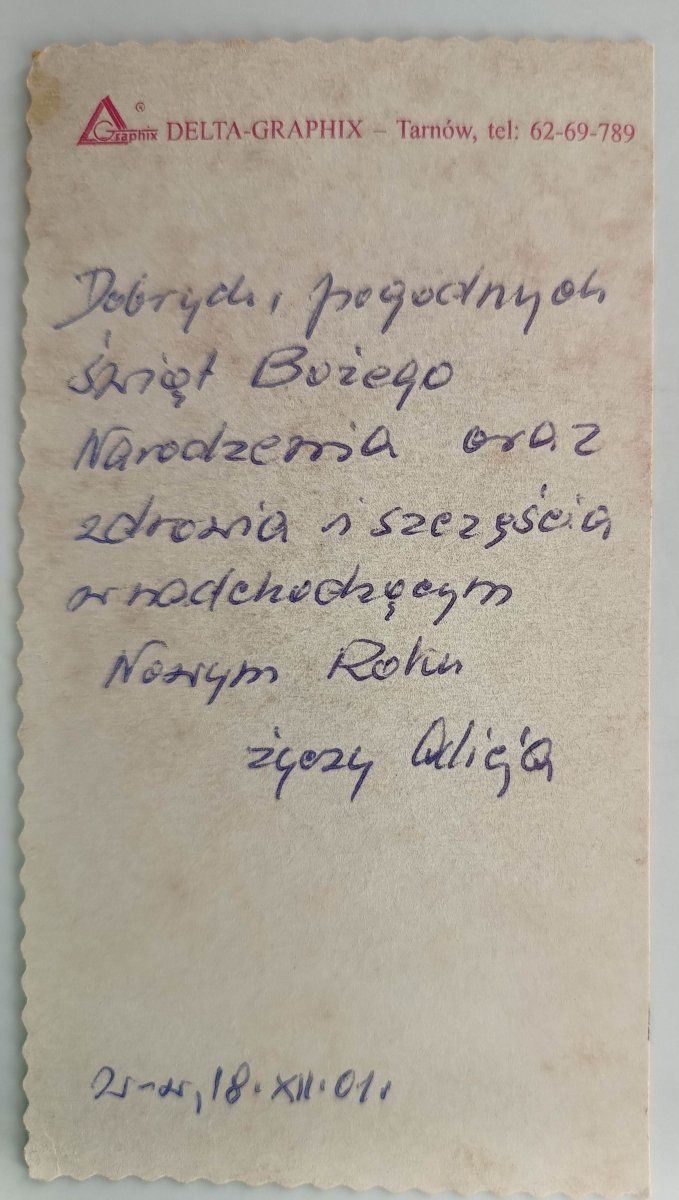 Graphix ® DELTA-GRAPHIX – Tarnów, tel: 62-69-789
Dobrych, pogodnych
świąt Bożego
Narodzenia oraz
zdrowia i szczęścia
w nadchodzącym
Nowym Roku
życzy Alicja
W-w, 18.XII.01.